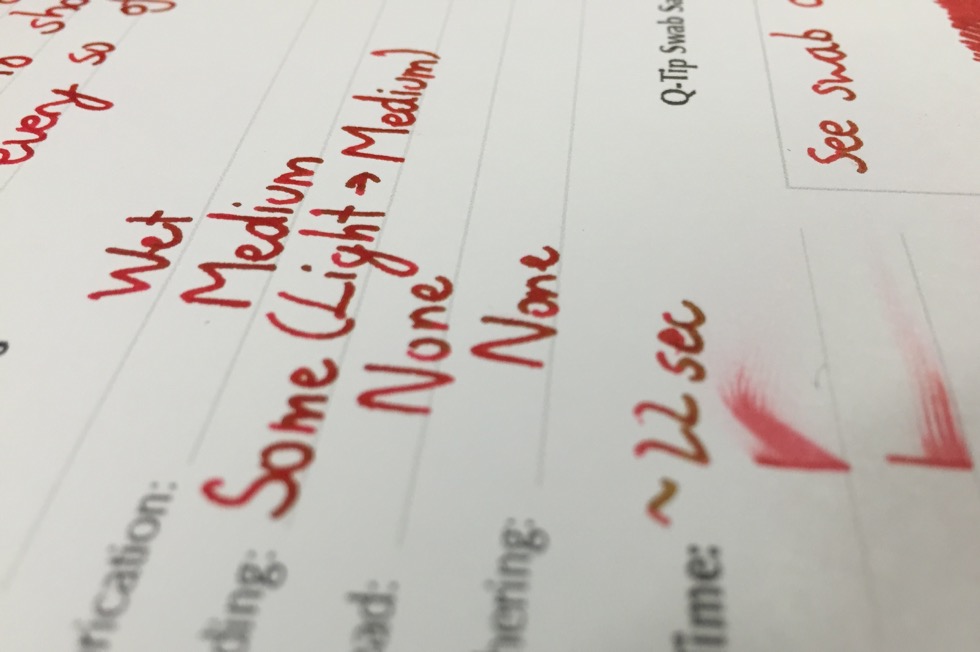 every so
Wet
rication: Medium
ding: Some (Light → Medium)
ead: None
hering: None
Time: ~ 22 sec
Q-Tip Swab
See swab